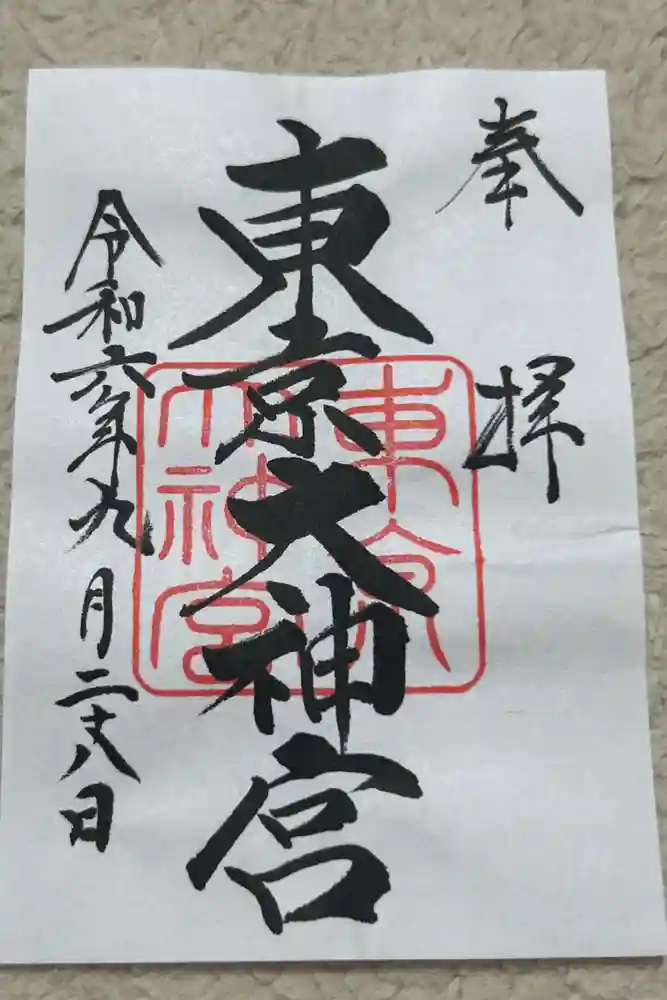 奉拝
東京大神宮
令和六年九月二十八日
東京
大神宮